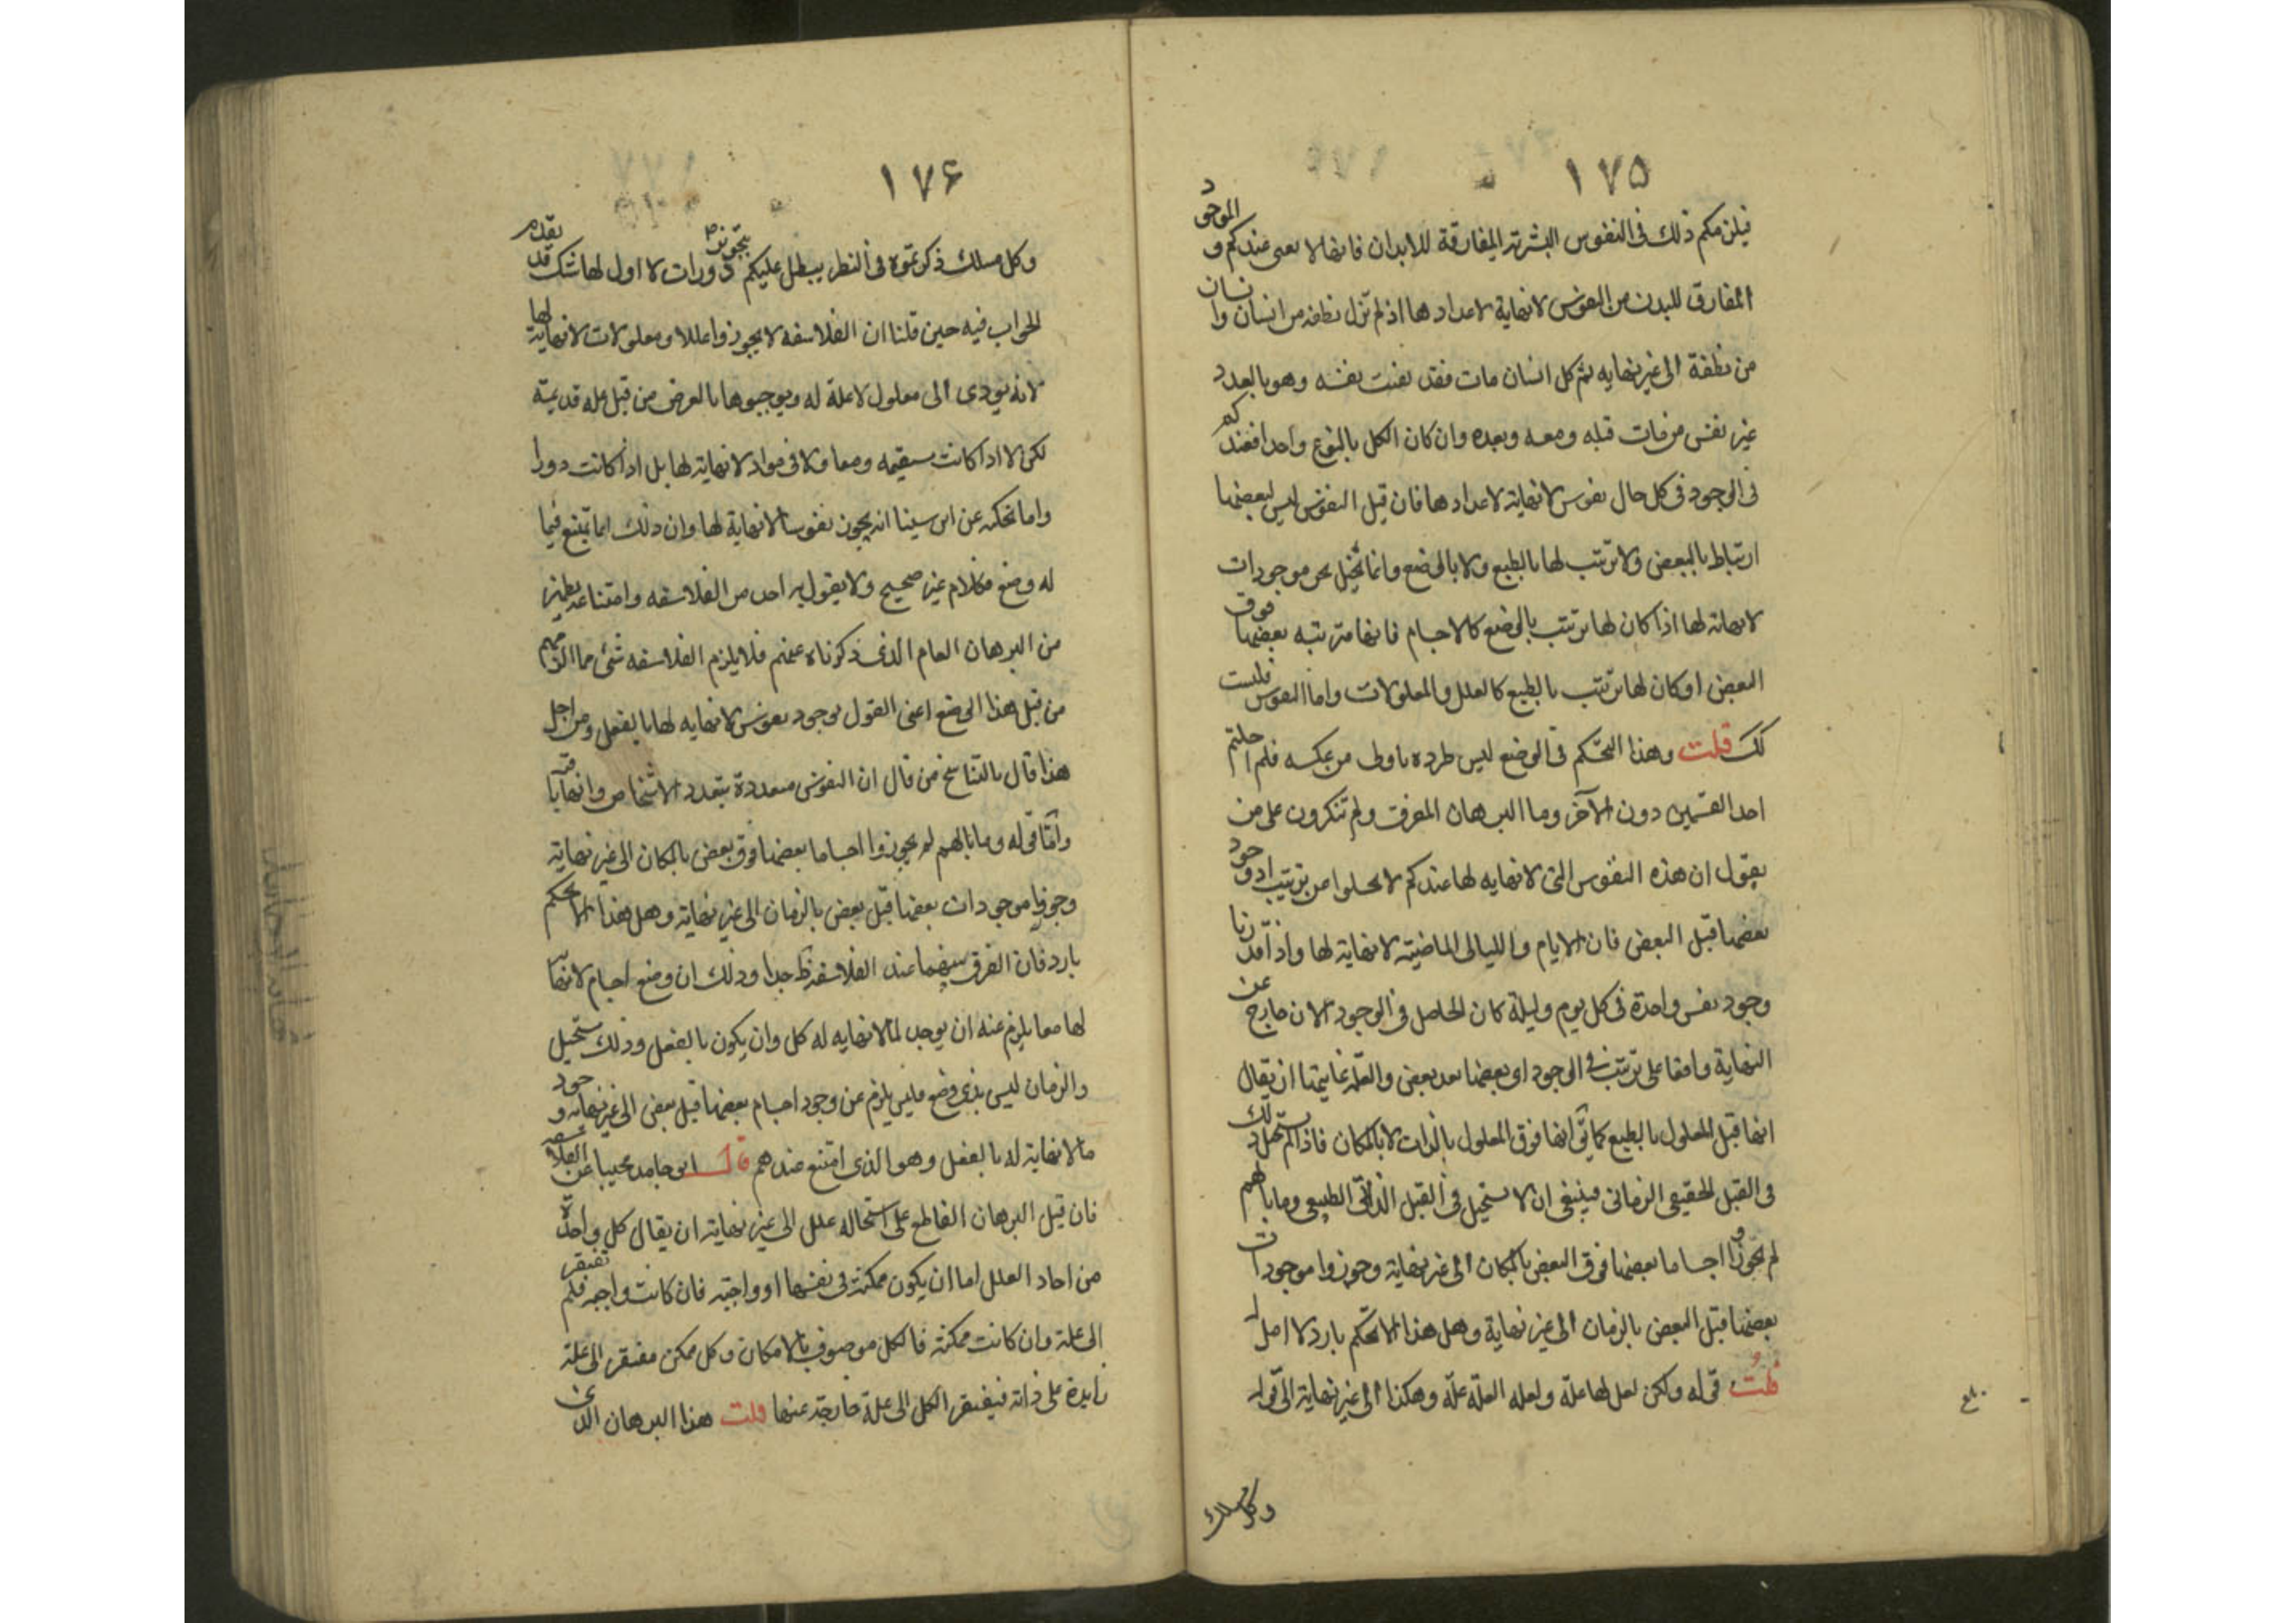 ١٧٥
فيلزمكم ذلك فى النفوس البشرية المفارقة للابدان فانها لا تفنى عندكم والموجود
المفارق للبدن من النفوس لا نهاية لاعدادها اذ لم تزل نطفة من انسان وانسان
من نطفة الى غير نهايه ثم كل انسان مات فقد بقيت نفسه وهو بالعدد
غير نفس من مات قبله ومعه وبعده وان كان الكل بالنوع واحدا فعندكم
فى الوجود فى كل حال نفوس لا نهاية لاعدادها فان قيل النفوس ليس لبعضها
ارتباط بالبعض ولا ترتيب لها بالطبع ولا بالوضع وانما نحيل نحن موجودات
لا نهاية لها اذا كان لها ترتيب بالوضع كالاجسام فانها مترتبه بعضها فوق
البعض او كان لها ترتيب بالطبع كالعلل والمعلولات واما النفوس فليست
كك قلت وهذا التحكم فى الوضع ليس طرده باولى من عكسه فلم احلتم
احد القسمين دون الآخر وما البرهان المفرق ولم تنكرون على من
يقول ان هذه النفوس التى لا نهايه لها عندكم لا تخلوا من ترتيب اذ وجود
بعضها قبل البعض فان الايام والليالى الماضية لا نهاية لها واذا قدرنا
وجود نفس واحدة فى كل يوم وليلة كان الحاصل فى الوجود الان خارج عن
النهاية واقعا على ترتيب فى الوجود اى بعضها بعد بعض والعلة غايتها ان يقال
انها قبل المعلول بالطبع كما يق انها فوق المعلول بالذات لا بالمكان فاذا لم يستحل ذلك
فى القبل الحقيقى الزمانى فينبغى ان لا يستحيل فى القبل الذاتى الطبيعى وما بالهم
لم يجوزوا اجساما بعضها فوق البعض بالمكان الى غير نهاية وجوزوا موجودات
بعضها قبل البعض بالزمان الى غير نهاية وهل هذا الا تحكم بارد لا اصل له
قلت قوله ولكن لعل لها علة ولعله العلة علة وهكذا الى غير نهاية الى قوله
وكل مسلك
١٧۶
وكل مسلك ذكرتموه فى النظر يبطل عليكم بتجويزكم دورات لا اول لها شك قد تقدم
الجواب فيه حين قلنا ان الفلاسفه لا يجوزوا عللا ومعلولات لا نهاية لها
لانه يودى الى معلول لا علة له ويوجبوها بالعرض من قبل علة قديمة
لكن لا اذا كانت مستقيمه ومعا ولا فى مواد لا نهاية لها بل اذا كانت دورا
واما نحكيه عن ابن سينا انه يجوز نفوسا لا نهاية لها وان ذلك انما يمتنع فيما
له وضع فكلام غير صحيح ولا يقول به احد من الفلاسفه وامتناعه يظهر
من البرهان العام الذى ذكرناه عنهم فلا يلزم الفلاسفه شئ مما الزمهم
من قبل هذا الوضع اعنى القول بوجود نفوس لا نهايه لها بالفعل ومن اجل
هذا قال بالتناسخ من قال ان النفوس متعددة بتعدد الاشخاص وانها باقية
واما قوله وما بالهم لم يجوزوا اجساما بعضها فوق بعض بالمكان الى غير نهاية
وجوزوا موجودات بعضها قبل بعض بالزمان الى غير نهاية وهل هذا الا تحكم
بارد فان الفرق بينهما عند الفلاسفة ظ جدا وذلك ان وضع اجسام لا نهاية
لها معا يلزم عنه ان يوجد لما لا نهايه له كل وان يكون بالفعل وذلك مستحيل
والزمان ليس بذى وضع فليس يلزم عن وجود اجسام بعضها قبل بعض الى غير نهايه وجود
ما لا نهاية له بالفعل وهو الذى امتنع عندهم قال ابو حامد مجيبا عن الفلاسفه
فان قيل البرهان القاطع على استحاله علل الى غير نهاية ان يقال كل واحدة
من احاد العلل اما ان يكون ممكنة فى نفسها او واجبة فان كانت واجبه فلم تفتقر
الى علة وان كانت ممكنة فالكل موصوف بالامكان وكل ممكن مفتقر الى علة
زايدة على ذاته فيفتقر الكل الى علة خارجة عنها قلت هذا البرهان الذى